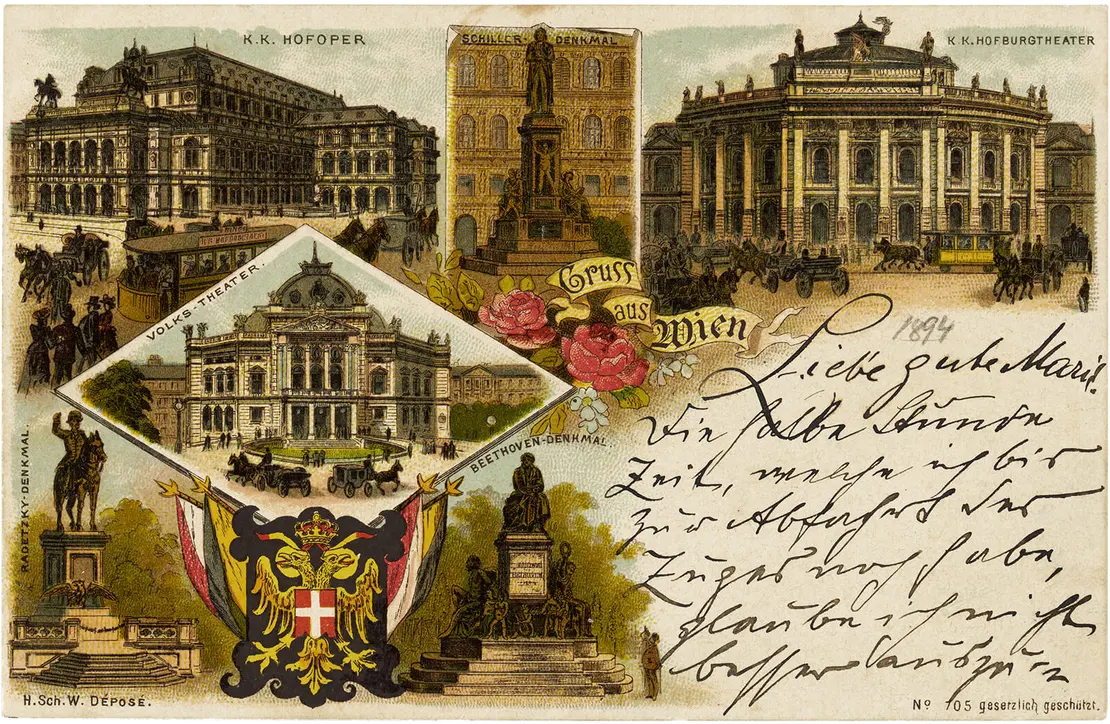 K.K. HOFOPER
SCHILLER-DENKMAL
K.K. HOFBURGTHEATER
VOLKS-THEATER.
Gruss
aus
Wien
1894
Liebe gute Marie!
Die halbe Stunde
Zeit, welche ich bis
zur Abfahrt des
Zuges noch habe,
glaube ich nicht
besser auszu=
RADETZKY-DENKMAL.
BEETHOVEN-DENKMAL.
H.Sch.W. DÉPOSÉ.
Nº 705 gesetzlich geschützt.